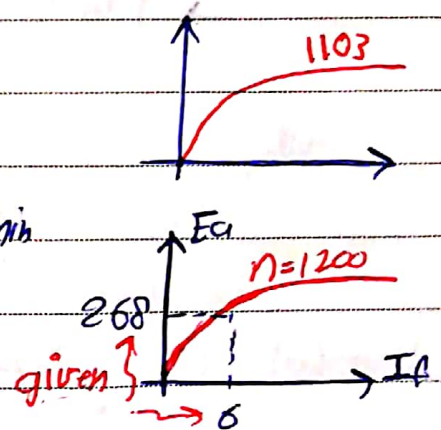 1103
Ea
n=1200
268
given
If
6